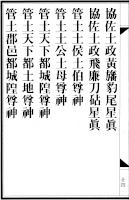 協佐土政黃旛豹尾星眞
協佐土政飛廉刀砧星眞
管土土侯土伯尊神
管土土公土母尊神
管土天下都城隍尊神
管土天下都土地尊神
管土郡邑都城隍尊神